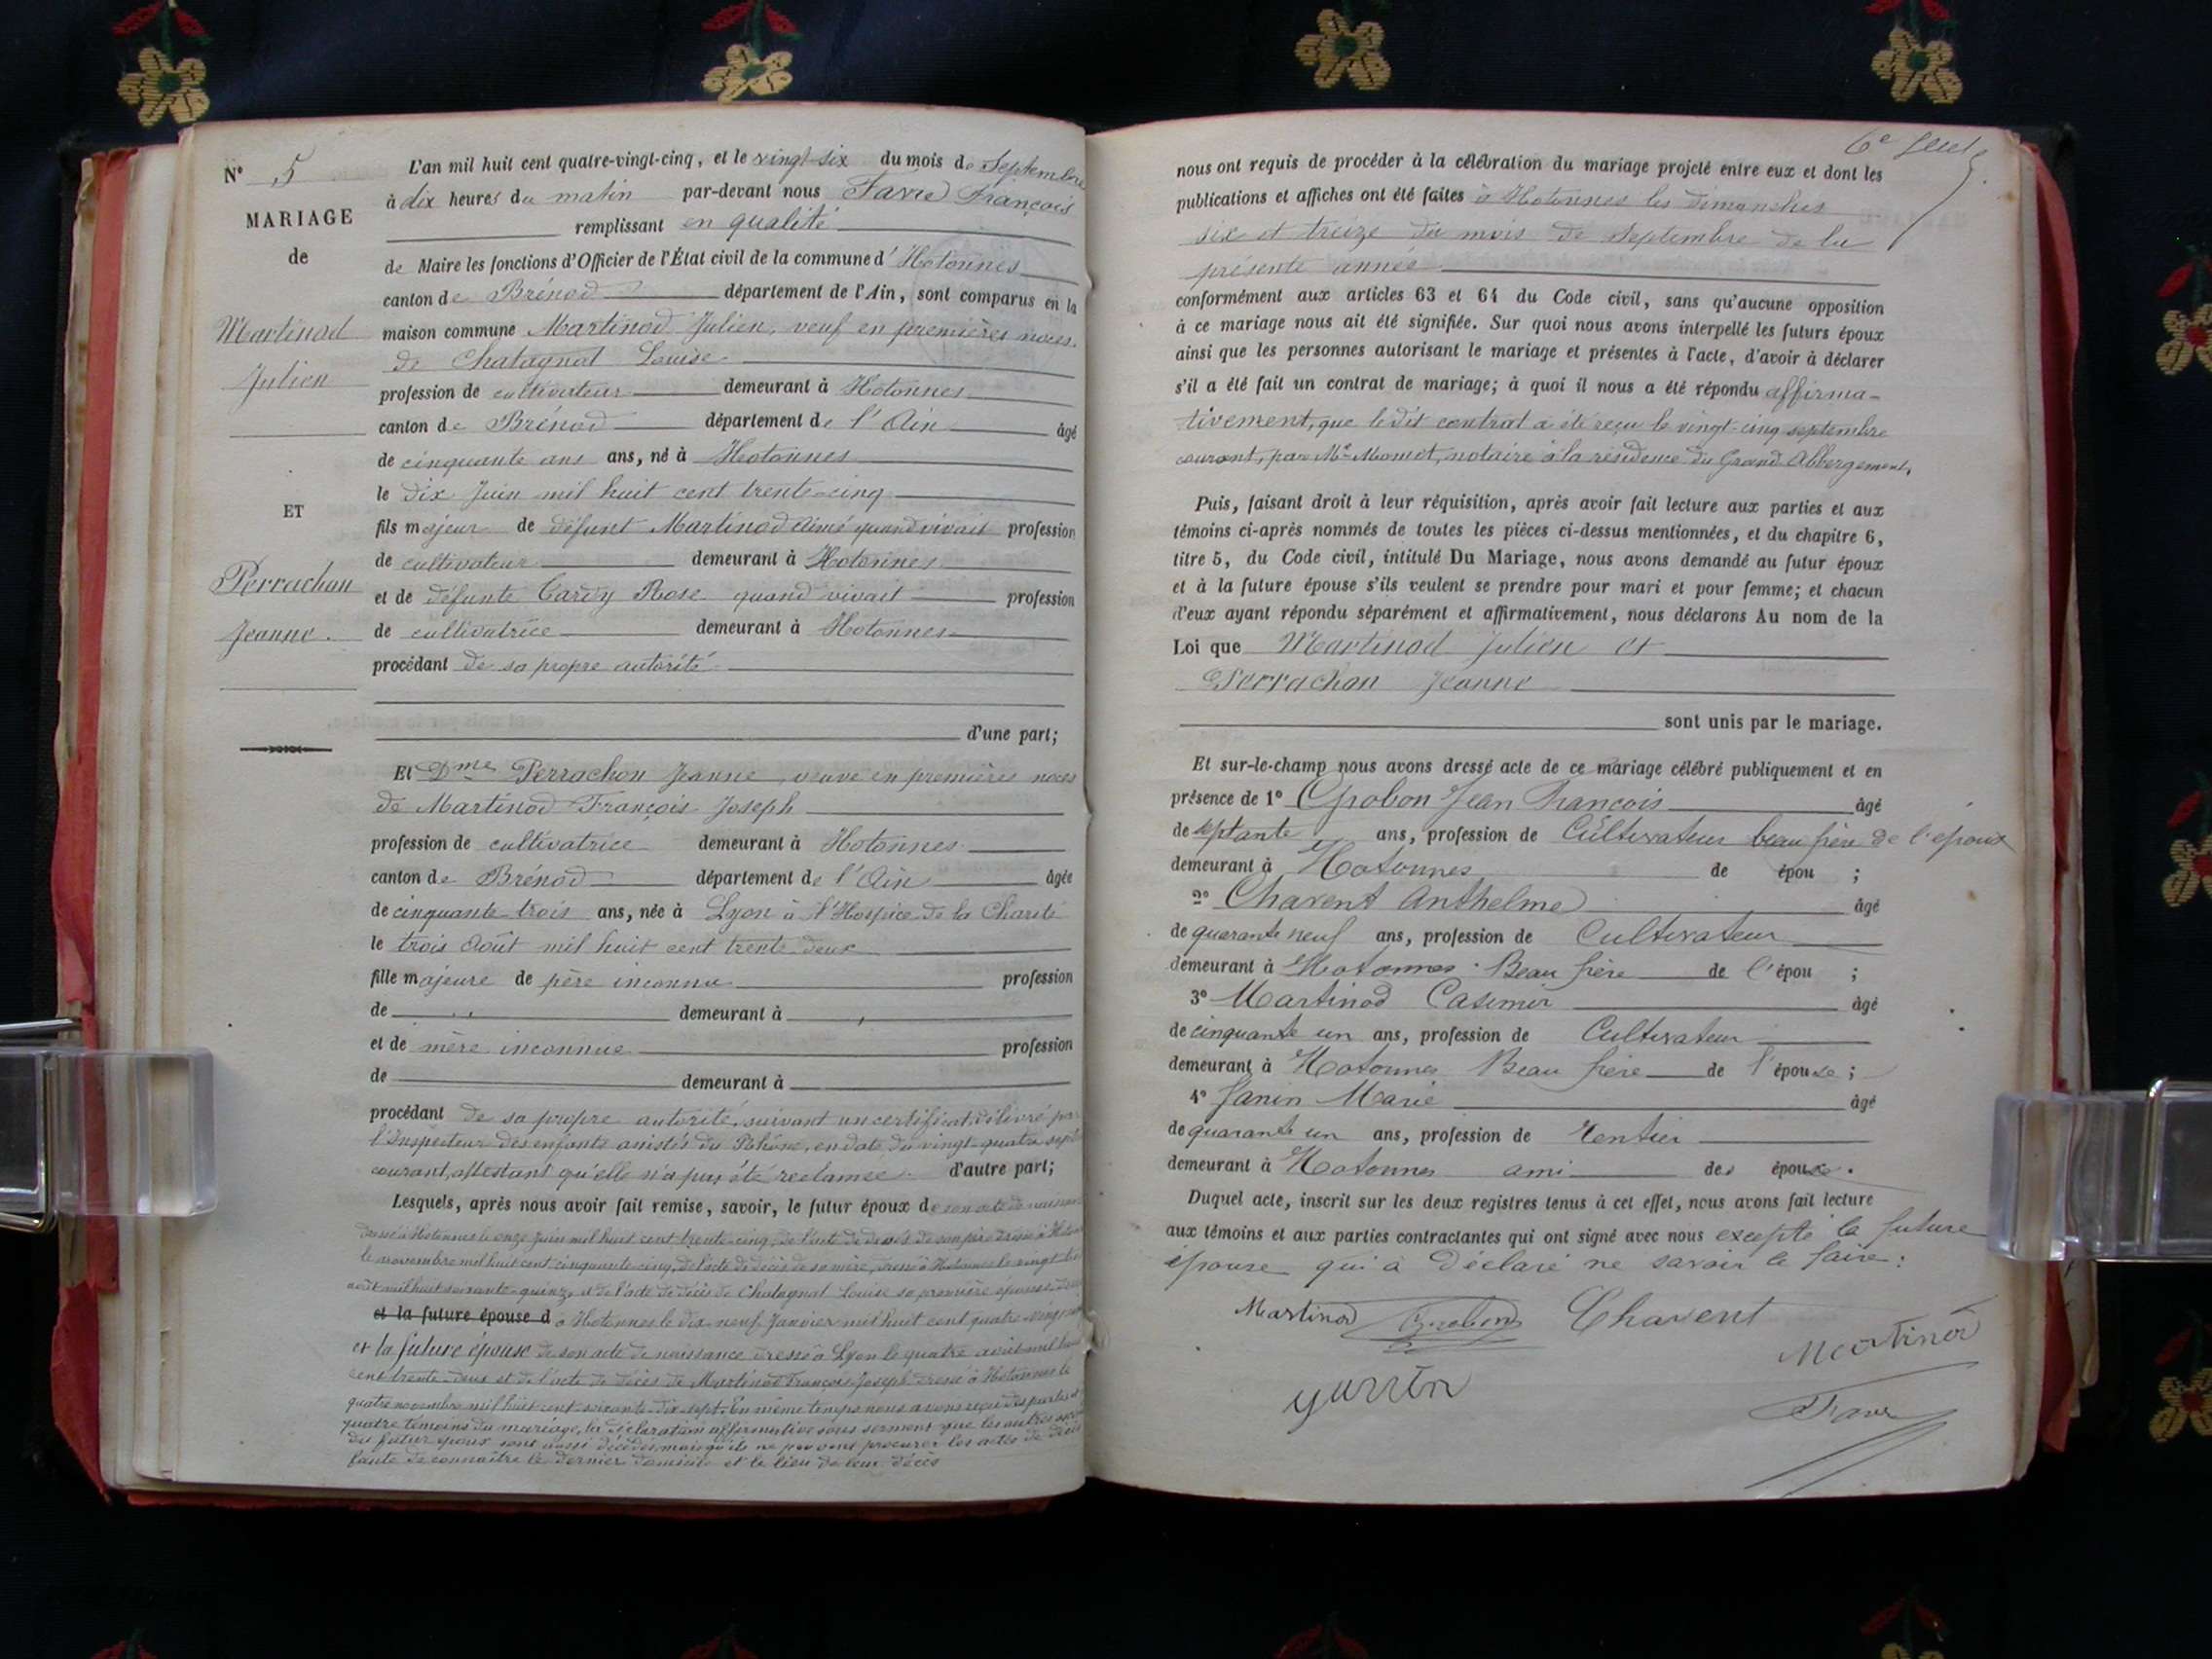 N° 5
MARIAGE
de
Martinod
Julien
ET
Perrachon
Jeanne.
L'an mil huit cent quatre-vingt-cinq, et le vingt-six du mois de Septembre
à dix heures du matin par-devant nous Favre François
remplissant en qualité
de Maire les fonctions d'Officier de l'État civil de la commune d' Hotonnes
canton de Brénod département de l'Ain, sont comparus en la
maison commune Martinod Julien, veuf en premières noces
de Chatagnat Louise
profession de cultivateur demeurant à Hotonnes
canton de Brénod département de l'Ain âgé
de cinquante ans ans, né à Hotonnes
le dix Juin mil huit cent trente-cinq
fils majeur de défunt Martinod Aimé quand vivait profession
de cultivateur demeurant à Hotonnes
et de défunte Carry Rose quand vivait profession
de cultivatrice demeurant à Hotonnes
procédant de sa propre autorité
d'une part;
Et Dme Perrachon Jeanne, veuve en premières noces
de Martinod François Joseph
profession de cultivatrice demeurant à Hotonnes
canton de Brénod département de l'Ain âgée
de cinquante trois ans, née à Lyon à l'Hospice de la Charité
le trois Août mil huit cent trente-deux
fille majeure de père inconnu profession
de demeurant à
et de mère inconnue profession
de demeurant à
procédant de sa propre autorité, suivant un certificat délivré par
l'Inspecteur des enfants assistés du Rhône, en date du vingt-quatre sept
courant, attestant qu'elle n'a pas été réclamée. d'autre part;
Lesquels, après nous avoir fait remise, savoir, le futur époux de son acte de naissance
dressé à Hotonnes le onze Juin mil huit cent trente-cinq, de l'acte de décès de son père dressé à
le novembre mil huit cent cinquante-cinq, de l'acte de décès de sa mère, dressé à Hotonnes le vingt
août mil huit soixante-quinze et de l'acte de décès de Chatagnat Louise sa première épouse
et la future épouse d à Hotonnes le dix-neuf Janvier mil huit cent quatre-vingt
et la future épouse de son acte de naissance dressé à Lyon le quatre août mil huit
cent trente-deux et de l'acte de décès de Martinod François Joseph dressé à Hotonnes le
quatre novembre mil huit cent soixante-dix-sept. En même temps nous avons reçu des parties et
quatre témoins du mariage, la déclaration affirmative sous serment que les autres
du futur époux sont aussi décédés, mais qu'ils ne peuvent procurer les actes de décès
faute de connaître le dernier domicile et le lieu de leur décès
6e
nous ont requis de procéder à la célébration du mariage projeté entre eux et dont les
publications et affiches ont été faites à Hotonnes les dimanches
six et treize du mois de Septembre de la
présente année
conformément aux articles 63 et 64 du Code civil, sans qu'aucune opposition
à ce mariage nous ait été signifiée. Sur quoi nous avons interpellé les futurs époux
ainsi que les personnes autorisant le mariage et présentes à l'acte, d'avoir à déclarer
s'il a été fait un contrat de mariage; à quoi il nous a été répondu affirma-
tivement, que le dit contrat a été reçu le vingt-cinq septembre
courant, par Me Momet, notaire à la résidence du Grand Abbergement,
Puis, faisant droit à leur réquisition, après avoir fait lecture aux parties et aux
témoins ci-après nommés de toutes les pièces ci-dessus mentionnées, et du chapitre 6,
titre 5, du Code civil, intitulé Du Mariage, nous avons demandé au futur époux
et à la future épouse s'ils veulent se prendre pour mari et pour femme; et chacun
d'eux ayant répondu séparément et affirmativement, nous déclarons Au nom de la
Loi que Martinod Julien et
Perrachon Jeanne
sont unis par le mariage.
Et sur-le-champ nous avons dressé acte de ce mariage célébré publiquement et en
présence de 1° Grobon Jean François âgé
de septante ans, profession de Cultivateur beau frère de l'époux
demeurant à Hotonnes de épou ;
2° Chavent Anthelme âgé
de quarante neuf ans, profession de Cultivateur
demeurant à Hotonnes Beau frère de l'épou ;
3° Martinod Casimir âgé
de cinquante un ans, profession de Cultivateur
demeurant à Hotonnes Beau frère de l'épouse ;
4° Janin Marie âgé
de quarante un ans, profession de Rentier
demeurant à Hotonnes ami des époux.
Duquel acte, inscrit sur les deux registres tenus à cet effet, nous avons fait lecture
aux témoins et aux parties contractantes qui ont signé avec nous excepté la future
épouse qui a déclaré ne savoir le faire:
Martinod Grobon Chavent
Martinod
Favre